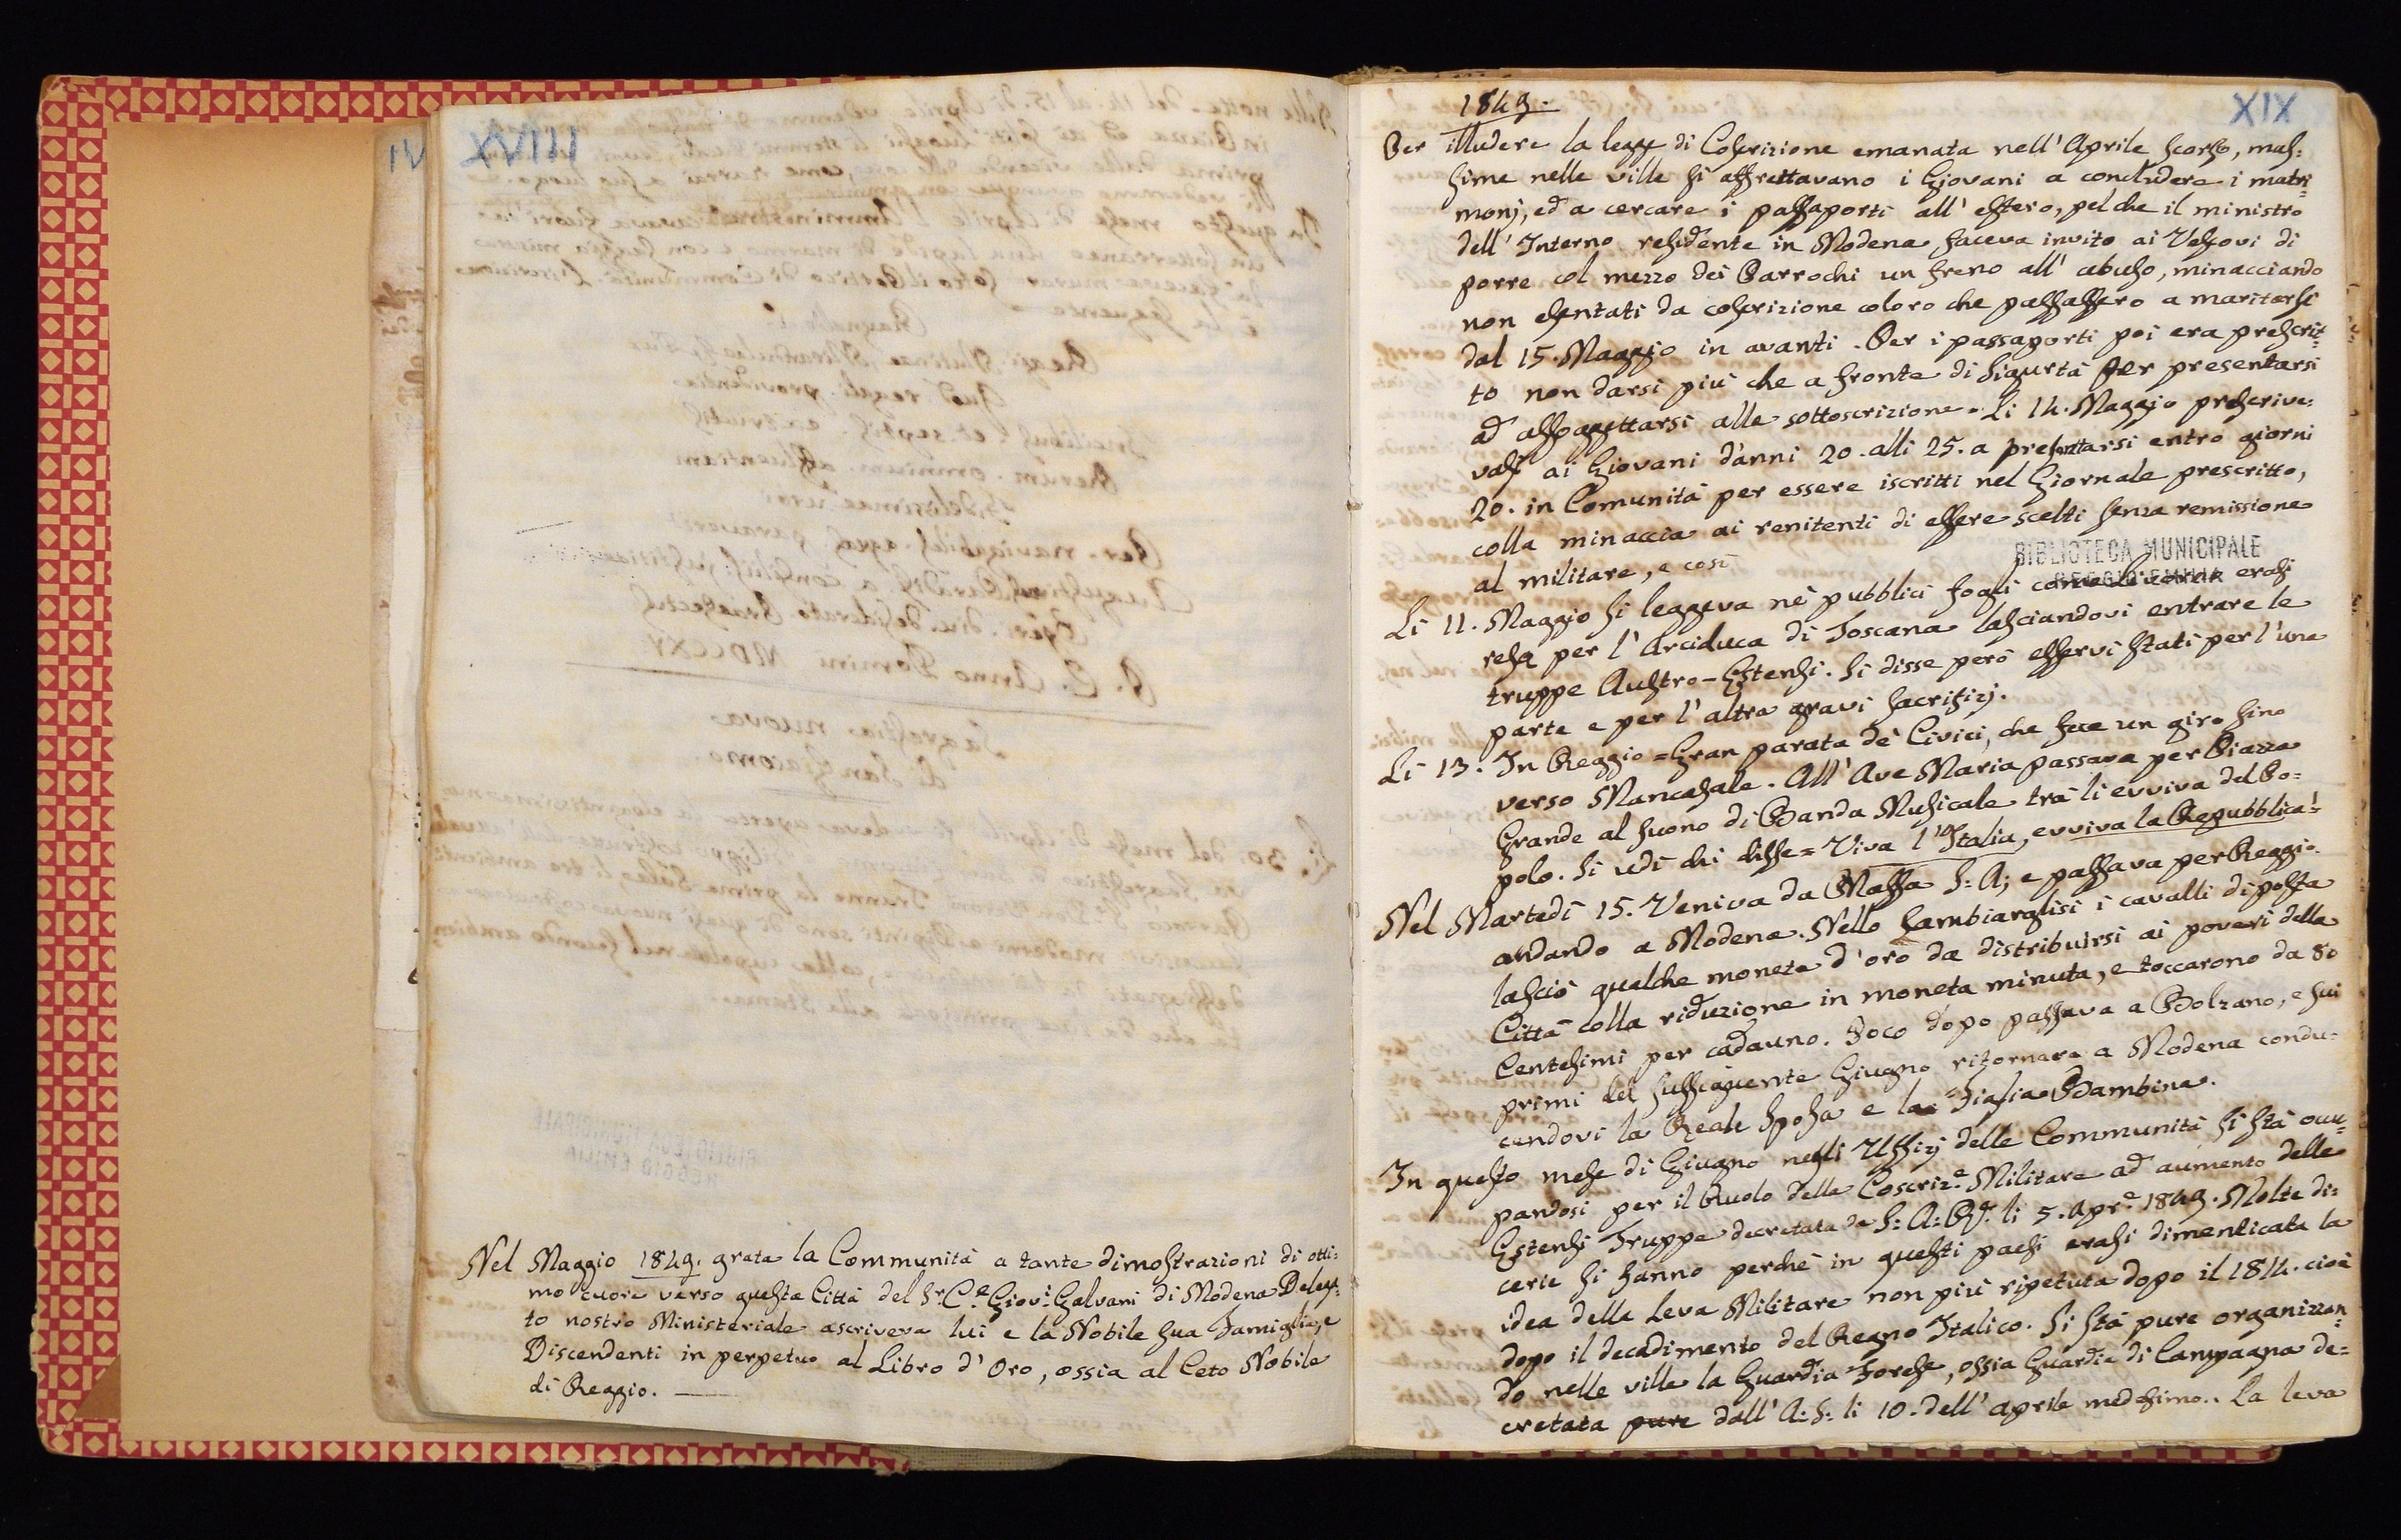 IV
XVIII
Nel Maggio 1849. grata la Communità a tante dimostrazioni di otti:
mo cuore verso questa Città del Sr. Ce. Giov.i Galvani di Modena Delega:
to nostro Ministeriale ascriveva lui e la Nobile sua Famiglia, e
Discendenti in perpetuo al Libro d'Oro, ossia al Ceto Nobile
di Reggio.
XIX
1849.
Per illudere la legge di Coscrizione emanata nell'Aprile scorso, mas:
sime nelle ville si affrettavano i Giovani a concludere i matri:
monj, ed a cercare i passaporti all'estero, pel che il ministro
dell'Interno residente in Modena faceva invito ai Vescovi di
porre col mezzo dei Parrochi un freno all'abuso, minacciando
non esentati da coscrizione coloro che passassero a maritarsi
dal 15. Maggio in avanti. Per i passaporti poi era prescrit:
to non darsi più che a fronte di sigurtà per presentarsi
ad assoggettarsi alle sottoscrizione. Li 14. Maggio prescrive:
vasi ai Giovani d'anni 20. alli 25. a presentarsi entro giorni
20. in Comunità per essere iscritti nel Giornale prescritto,
colla minaccia ai renitenti di essere scelti senza remissione
al militare, e così
BIBLIOTECA MUNICIPALE
REGGIO EMILIA
Li 11. Maggio si leggeva nè pubblici fogli come Livorno erasi
resa per l'Arciduca di Toscana lasciandovi entrare le
truppe Austro-Estensi. Si disse però esservi stati per l'una
parte e per l'altra gravi sacrifizj.
Li 13. In Reggio = Gran parata de' Civici, che fece un giro sino
verso Mancasale. All'Ave Maria passava per Piazza
Grande al suono di Banda Musicale trà li evviva del Po=
polo. Si udì chi disse = Viva l'Italia, evviva la Repubblica!
Nel Martedì 15. Veniva da Massa S: A; e passava per Reggio
andando a Modena. Nello Cambiarglisi i cavalli di posta
lasciò qualche moneta d'oro da distribuirsi ai poveri della
Città colla riduzione in moneta minuta, e toccarono da 80
Centesimi per cadauno. Poco dopo passava a Bolzano, e sui
primi del susseguente Giugno ritornava a Modena condu:
cendovi la Reale Sposa e la Figlia Bambina.
In questo mese di Giugno negli Uffizj delle Communità si stà occu:
pandosi per il Ruolo della Coscriz.e Militare ad aumento delle
Estensi Truppe decretata da S: A: R. li 5. Apr.e 1849. Molte di:
cerie si fanno perchè in questi paesi erasi dimenticata la
idea della Leva Militare non più ripetuta dopo il 1814. cioè
dopo il decadimento del Regno Italico. Si stà pure organizzan:
do nelle ville la Guardia Forese, ossia Guardia di Campagna de=
cretata pure dall'A: S: li 10. dell'aprile medesimo. La leva